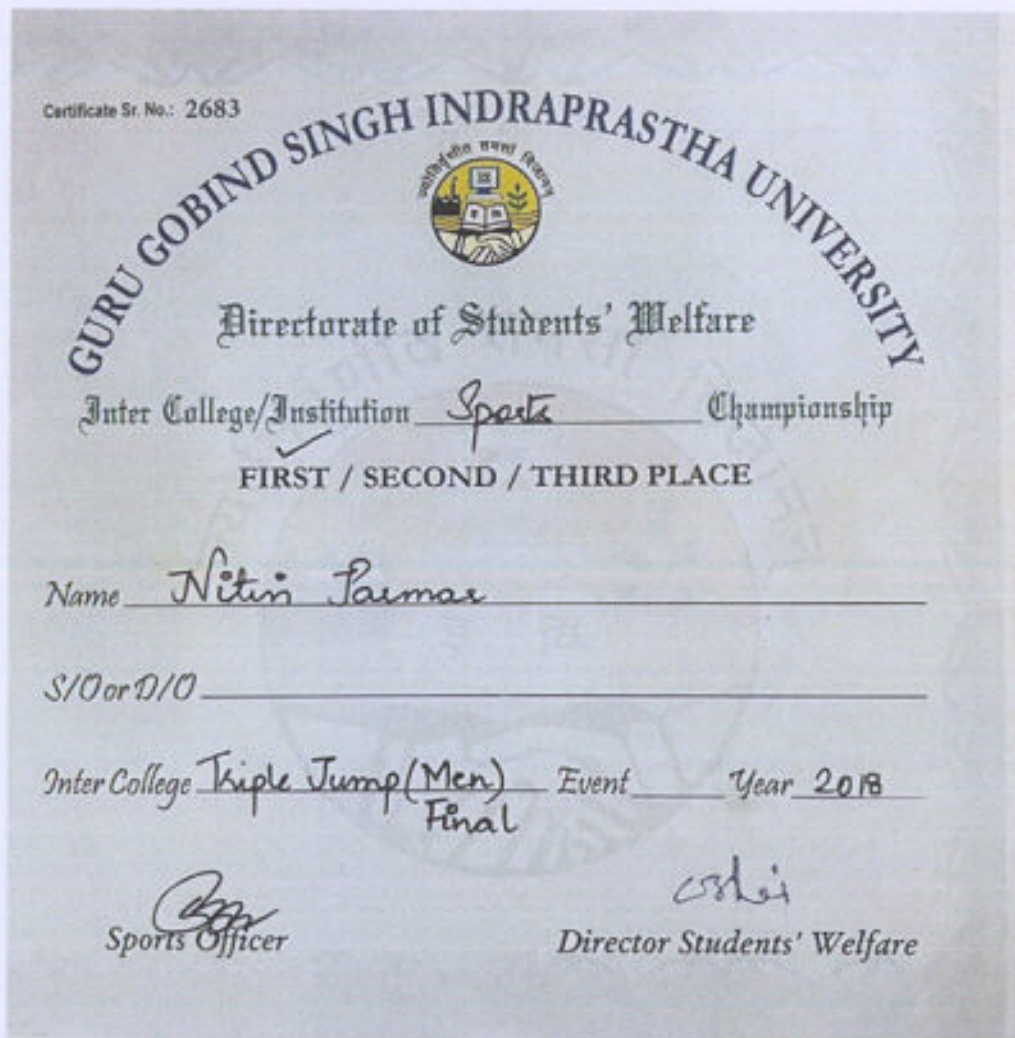 Certificate Sr. No.: 2683
GURU GOBIND SINGH INDRAPRASTHA UNIVERSITY
Directorate of Students' Welfare
Inter College/Institution Sports Championship
FIRST / SECOND / THIRD PLACE
Name Nitin Parmar
S/O or D/O
Inter College Triple Jump (Men) Event Year 2018
Final
Sports Officer
Director Students' Welfare